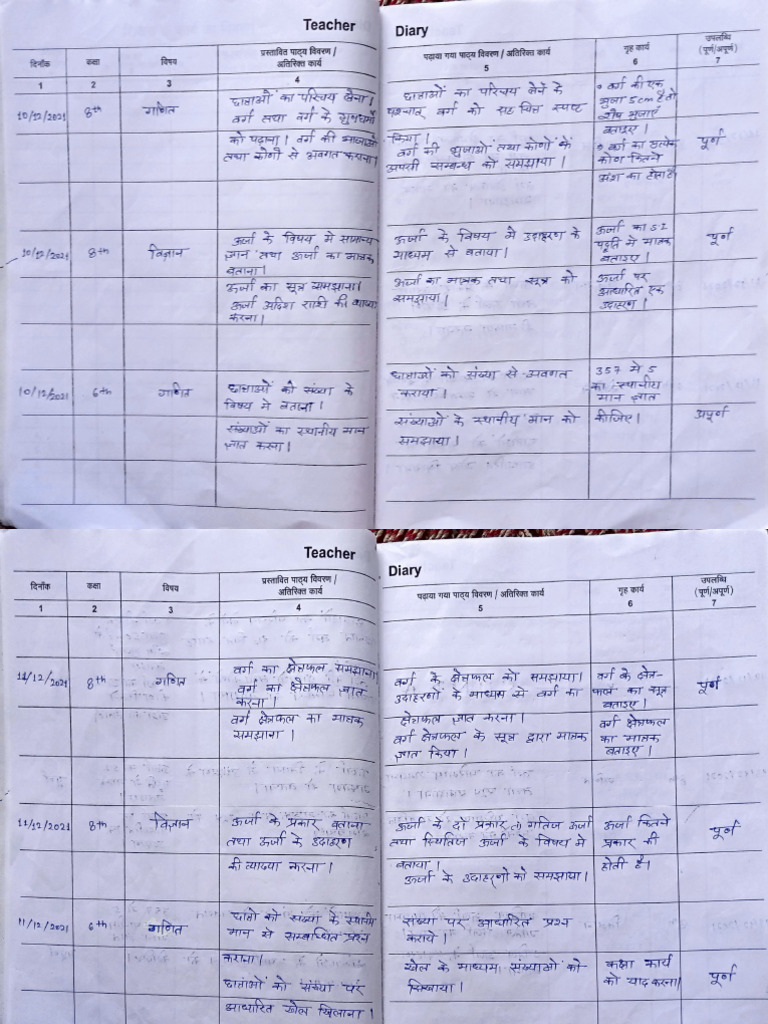 Teacher Diary
दिनाँक
कक्षा
विषय
प्रस्तावित पाठ्य विवरण /
अतिरिक्त कार्य
पढ़ाया गया पाठ्य विवरण / अतिरिक्त कार्य
गृह कार्य
उपलब्धि
(पूर्ण/अपूर्ण)
1 2 3 4 5 6 7
10/12/2021
8th
गणित
छात्राओं का परिचय लेना।
वर्ग तथा वर्ग के
को पढ़ाना। वर्ग की भुजाओं
तथा कोणों से अवगत कराना।
छात्राओं का परिचय लेने के
पश्चात् वर्ग को सचित्र स्पष्ट
किया।
वर्ग की भुजाओं तथा कोणों के
आपसी सम्बन्ध को समझाया।
वर्ग की एक
भुजा 5cm है तो
शेष भुजाएँ
बताइए।
वर्ग का प्रत्येक
कोण कितने
अंश का होता है
पूर्ण
10/12/2021
8th
विज्ञान
ऊर्जा के विषय में सामान्य
ज्ञान तथा ऊर्जा का मात्रक
बताना।
ऊर्जा का सूत्र समझाना।
ऊर्जा अदिश राशि की व्याख्या
करना।
ऊर्जा के विषय में उदाहरण के
माध्यम से बताया।
ऊर्जा का मात्रक तथा सूत्र को
समझाया।
ऊर्जा का S.I
पद्दति में मात्रक
बताइए।
ऊर्जा पर
आधारित एक
उदाहरण।
पूर्ण
10/12/2021
6th
गणित
छात्राओं को संख्या के
विषय में बताना।
संख्याओं का स्थानीय मान
ज्ञात करना।
छात्राओं को संख्या से अवगत
कराया।
संख्याओं के स्थानीय मान को
समझाया।
357 में 5
का स्थानीय
मान ज्ञात
कीजिए।
अपूर्ण
Teacher Diary
दिनाँक
कक्षा
विषय
प्रस्तावित पाठ्य विवरण /
अतिरिक्त कार्य
पढ़ाया गया पाठ्य विवरण / अतिरिक्त कार्य
गृह कार्य
उपलब्धि
(पूर्ण/अपूर्ण)
1 2 3 4 5 6 7
11/12/2021
8th
गणित
वर्ग का क्षेत्रफल समझाना।
वर्ग का क्षेत्रफल ज्ञात
करना।
वर्ग क्षेत्रफल का मात्रक
समझाना।
वर्ग के क्षेत्रफल को समझाया।
उदाहरणों के माध्यम से वर्ग का
क्षेत्रफल ज्ञात करना।
वर्ग क्षेत्रफल के सूत्र द्वारा मात्रक
ज्ञात किया।
वर्ग के क्षेत्र-
फल का सूत्र
बताइए।
वर्ग क्षेत्रफल
का मात्रक
बताइए।
पूर्ण
11/12/2021
8th
विज्ञान
ऊर्जा के प्रकार बताना
तथा ऊर्जा के उदाहरण
की व्याख्या करना।
ऊर्जा के दो प्रकार गतिज ऊर्जा
तथा स्थितिज ऊर्जा के विषय में
बताया।
ऊर्जा के उदाहरणों को समझाया।
ऊर्जा कितने
प्रकार की
होती है।
पूर्ण
11/12/2021
6th
गणित
छात्रों को संख्या के स्थानीय
मान से सम्बन्धित प्रश्न
कराना।
छात्राओं को संख्या पर
आधारित खेल खिलाना।
संख्या पर आधारित प्रश्न
कराये।
खेल के माध्यम संख्याओं को
सिखाया।
कक्षा कार्य
को याद करना।
पूर्ण